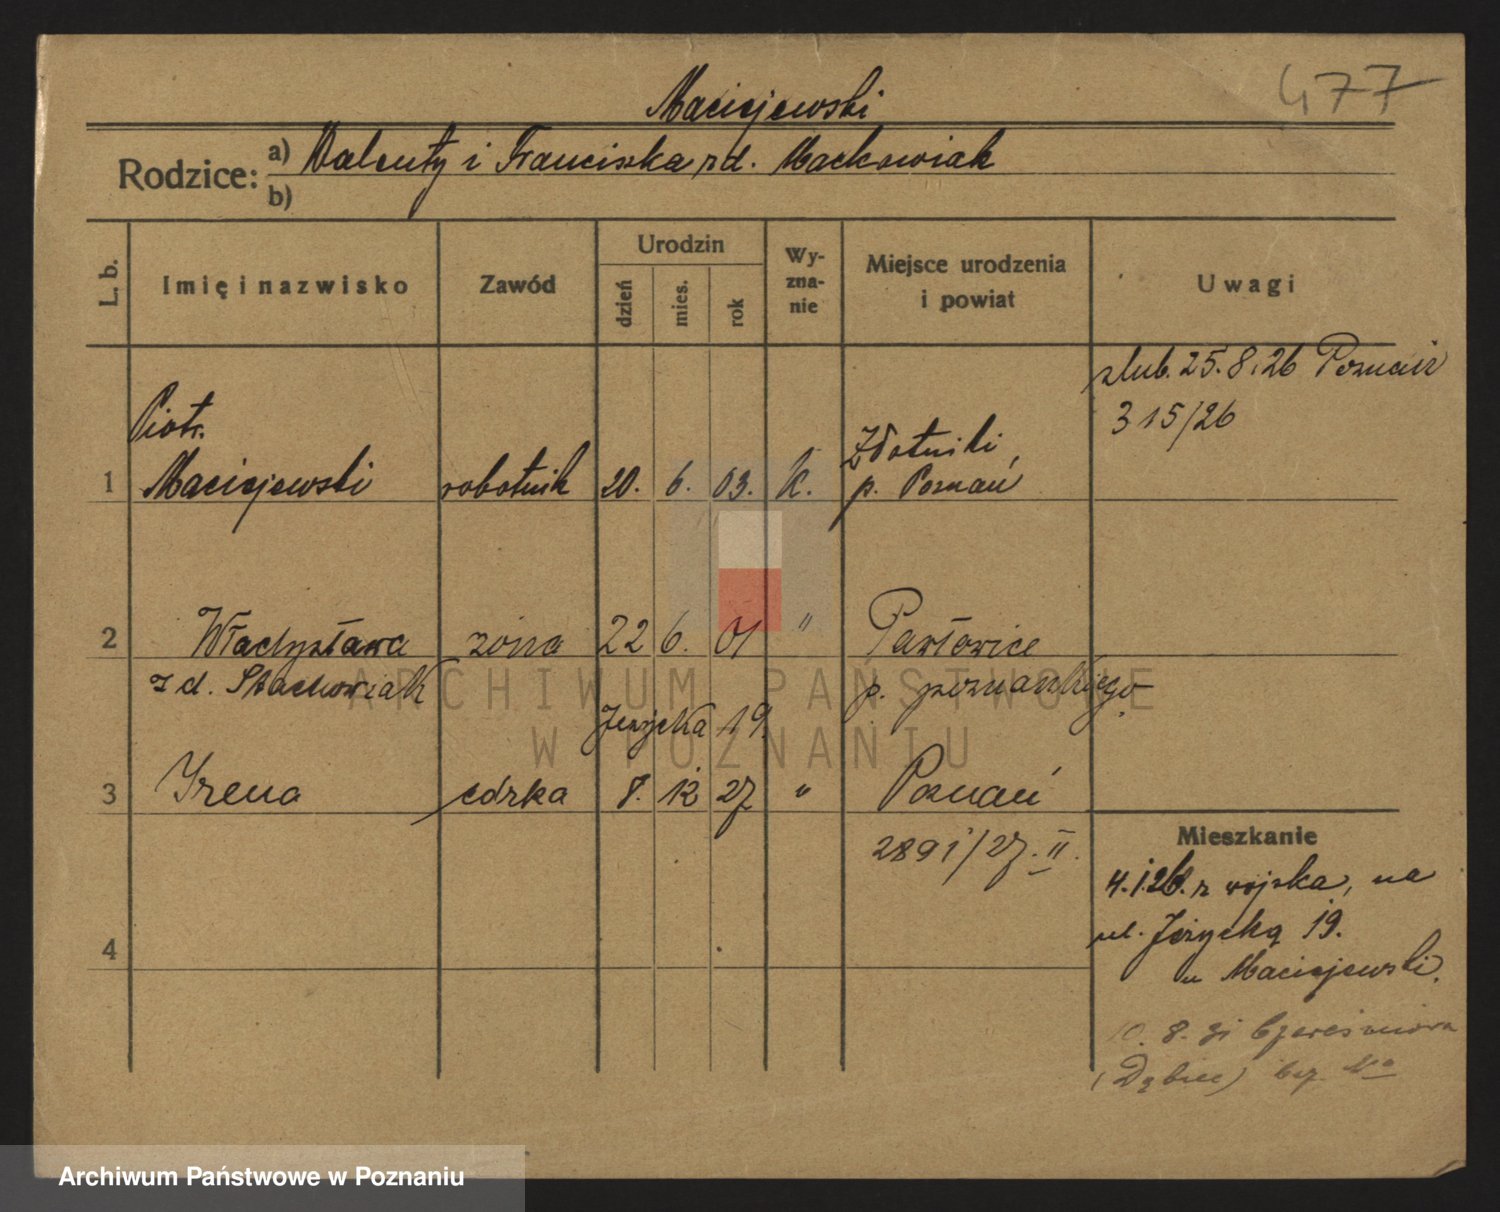 477
Maciejewski
Rodzice: a) Walenty i Franciszka zd. Maćkowiak
b)
L. b.
Imię i nazwisko
Zawód
Urodzin
dzień
mies.
rok
Wy-
zna-
nie
Miejsce urodzenia
i powiat
Uwagi
ślub. 25.8.26 Poznań
315/26
Piotr
1 Maciejewski robotnik 20. 6. 03. k. Złotniki,
p. Poznań
2 Władysława żona 22 6. 01 " Pawłowice
z d. Stachowiak p. poznańskiego
Jeżycka 19.
3 Irena córka 8. 12 27 " Poznań
2891/27. II.
4
Mieszkanie
4.1.26. z wojska, na
ul. Jeżycką 19.
u Maciejewski.
10. 8. 31 Czereśniowa
(Dębiec) bez No
ARCHIWUM PAŃSTWOWE
W POZNANIU
Archiwum Państwowe w Poznaniu